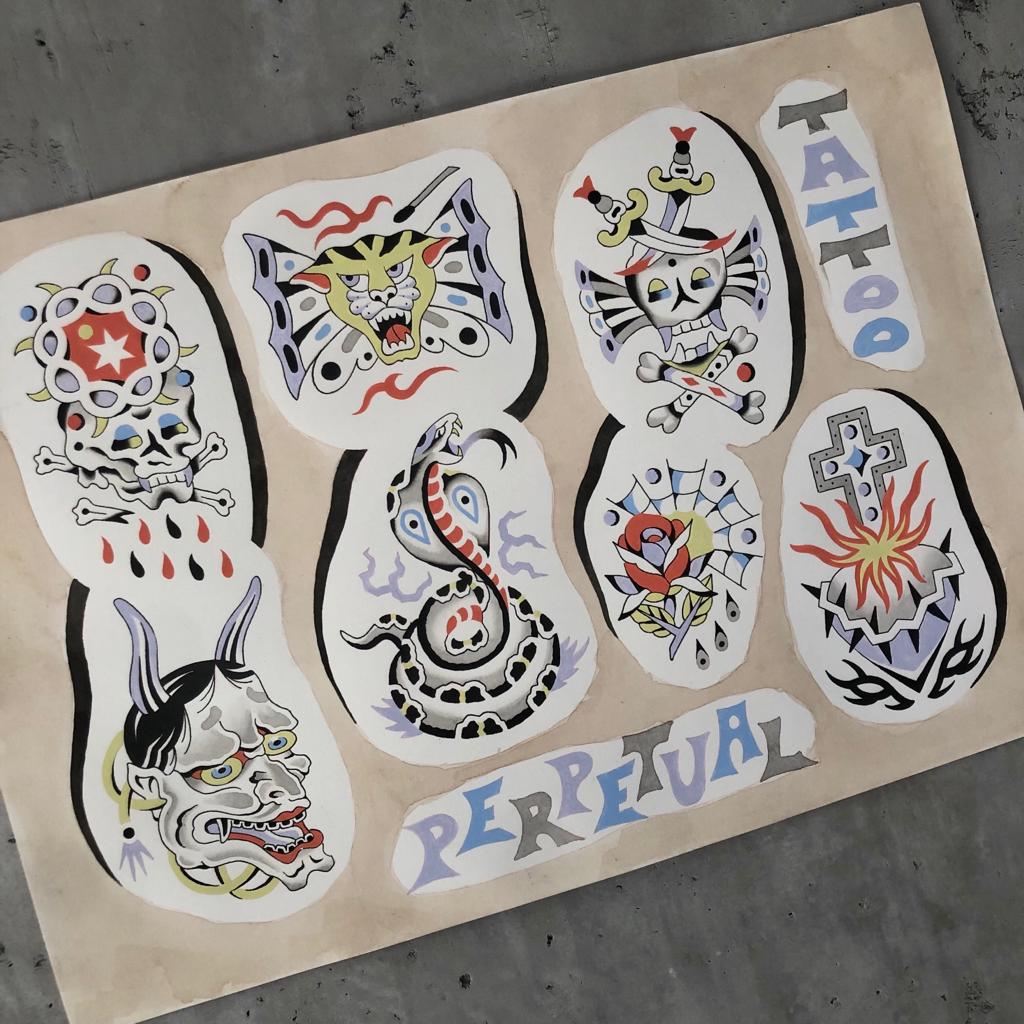 TATTOO
PERPETUAL